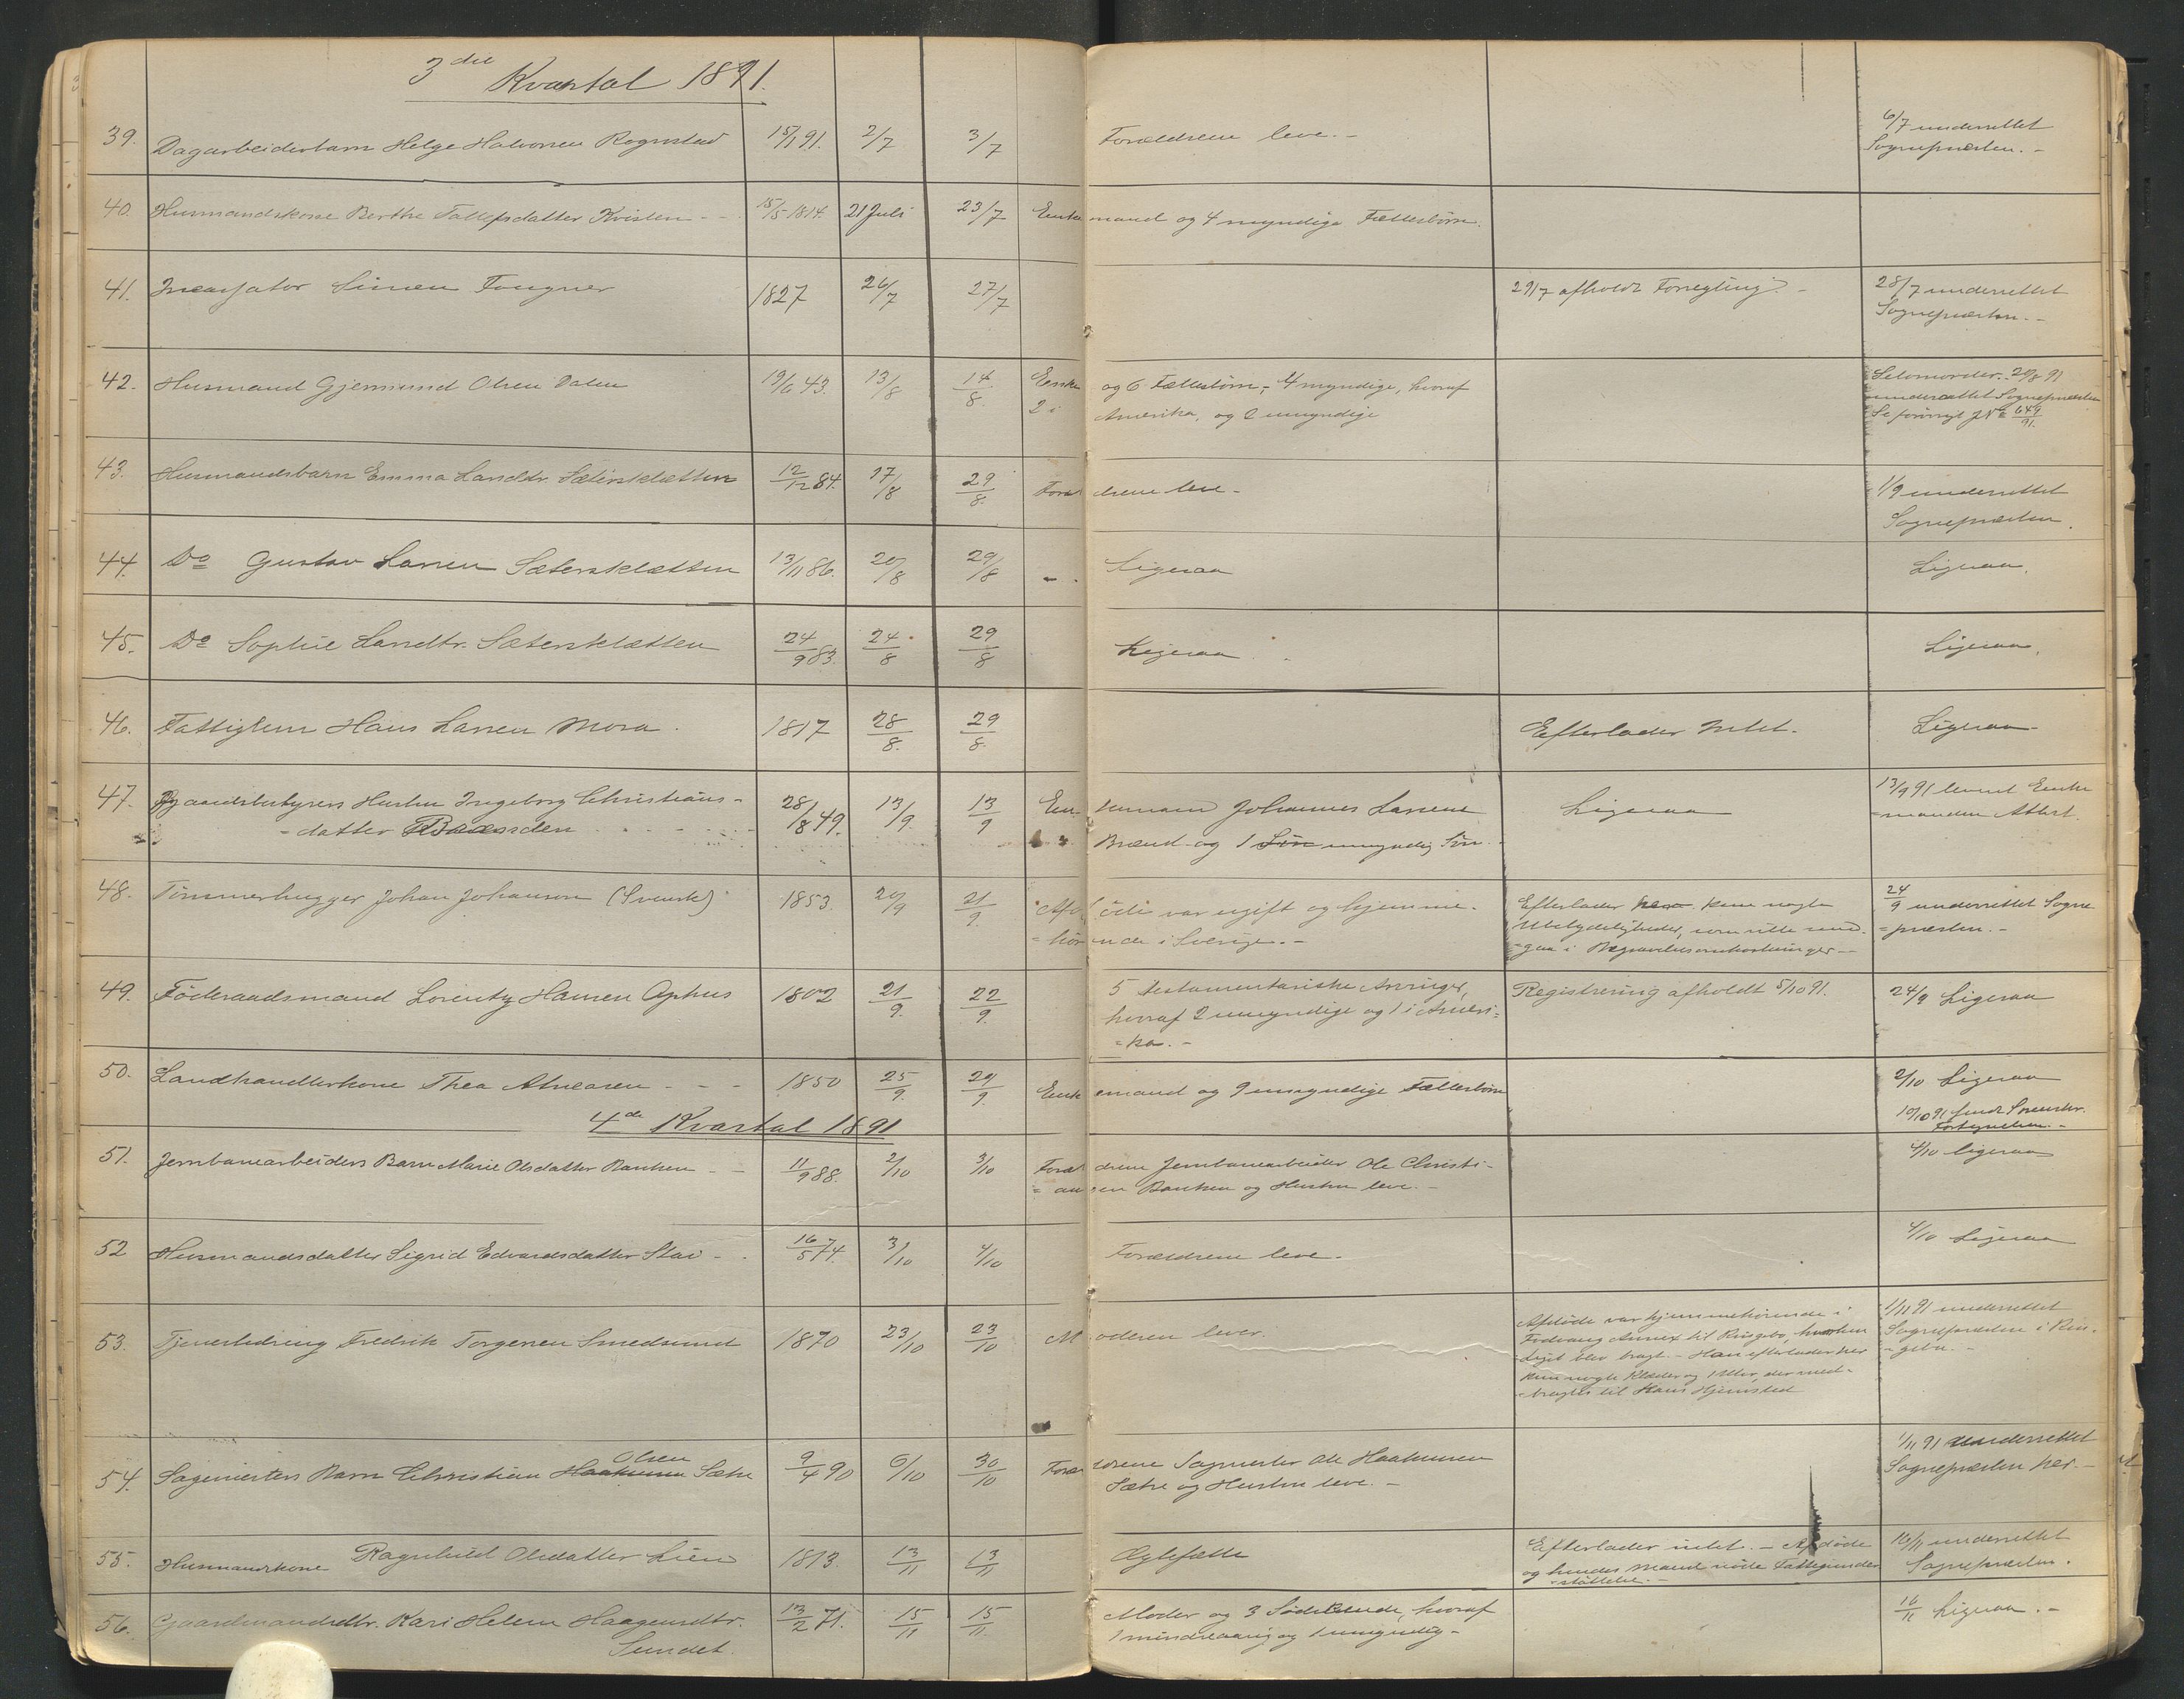 3die Kvartal 1891.
39. Dagarbeiderbarn Helge Halvorsen Rognstad 15/1 91. 2/7 3/7 Forældrene leve. - 6/7 underrettet
Sognepresten. -
40. Husmandskone Berthe Tollefsdatter Kvislen - - 15/5 1814. 21 Juli 23/7 Enkemand og 4 myndige Fællesbörn.
41. Simen Fougner 1827 26/7 27/7 29/7 afholdt Forsegling. - 28/7 underrettet
Sognepresten. -
42. Husmand Gjermund Olsen Dalen 19/6 43. 13/8 14/8. Enke og 6 Fællesbörn, 4 myndige, hvoraf
2 i Amerika, og 2 umyndige
Selvmorder. 20/8 91
underrettet Sognepresten
Se forövrigt J No 649/91.
43. Husmandsbarn Emma Larsdtr. Sætersletten 12/12 84. 17/8 29/8. Forældrene leve. - 1/9 underrettet
Sognepresten.
44. Do Gustav Larsen Sætersletten 13/11 86. 20/8 29/8 - Ligesaa Ligesaa.
45. Do Sophie Larsdtr. Sætersletten 24/9 83. 24/8 29/8 Ligesaa Ligesaa.
46. Fattiglem Hans Larsen Mora. 1817 28/8. 29/8. Efterlader Intet. - Ligesaa
47. Gaardsbestyrers Hustru Ingeborg Christians- 28/8 49. 13/9. 13/9 Enkemand Johannes Larsen Ligesaa 13/9 91 leveret Enke
-datter Brænden Brænd. og 1 Sön umyndig Sön. =manden Attest.
48. Tömmerhugger Johan Johanson (Svensk) 1853. 20/9 21/9. Afdöde var ugift og hjemme-
=hörende i Sverige. -
Efterlader her kun nogle
Ubetydeligheder, som ville med-
=gaa i Begravelsesomkostninger -
24/9 underrettet Sogne
=presten. -
49. Föderaadsmand Lorents Hansen Ophus 1802 21/9. 22/9. 5 testamentariske Arvinger,
hvoraf 2 umyndige og 1 i Ameri=
=ka. -
Registrering afholdt 5/10 91. 24/9 Ligesaa
50. Landhandlerkone Thea - - - 1850 25/9. 29/9. Enkemand og 9 umyndige Fællesbörn 2/10 Ligesaa
10/10 91 sendt
4de Kvartal 1891
51. Jernbanearbeiders Barn Marie Olsdatter Banken - - 11/9 88. 2/10 3/10 Forældrene Jernbanearbeider Ole Christi-
=ansen Banken og Hustru leve. -
4/10 ligesaa
52 Husmandsdatter Sigrid Edvardsdatter Stai - - 16/5 74. 3/10 4/10 Forældrene leve. - 4/10 Ligesaa
53. Tjenestedreng Fredrik Torgersen Smedsrud 1870 23/10 23/10 Moderen lever.
Afdöde var hjemmehörende i
Annex til Ringebu, hvorhen
Liget blev bragt. - Han efterlader her
kun nogle Klæder og 1 Uhr, der med-
-bragtes til Hans Hjemsted
1/11 91 underrettet
Sognepresten i Rin-
-gebu. -
54. Sagmesters Barn Christian Haakensen Olsen Sætre 9/4 90 6/10 30/10 Forældrene Sagmester Ole Haakensen
Sætre og Hustru leve. -
1/11 91 underrettet
Sognepresten her. -
55. Husmandskone Ragnhild Olsdatter Lien 1813. 13/11 13/11 Ægtefælle
Efterlader intet. - Afdöde
og hendes Mand nöde Fattigunder
=stöttelse. -
16/11 underrettet
Sognepresten.
56. Gaardmandsdtr. Kari Helene Haagensdtr. 13/2 71. 15/11 15/11. Moder og 3 Södskende, hvoraf 16/11 Ligesaa. -
Sundet. 1 mindreaarig og 1 umyndig -